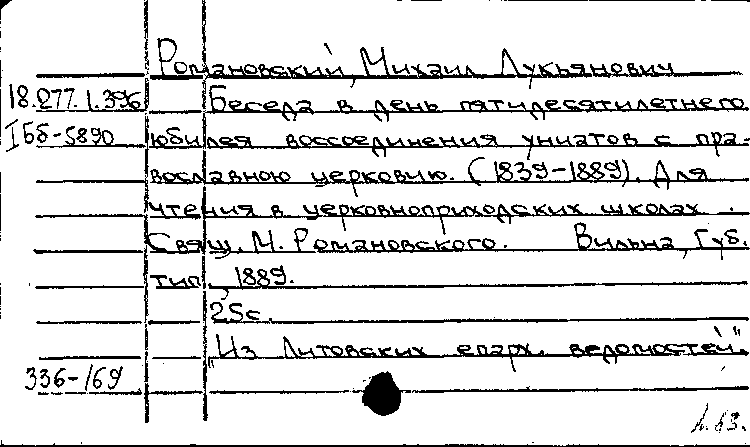 Романовский, Михаил Лукьянович
18.277.1.396 Беседа в день пятидесятилетнего
I Бб-5890 юбилея воссоединения униатов с пра-
вославною церковию. (1839-1889). Для
чтения в церковноприходских школах.
Свящ. М. Романовского. Вильна, Губ.
тип., 1889.
25с.
"Из Литовских епарх. ведомостей".
336-169